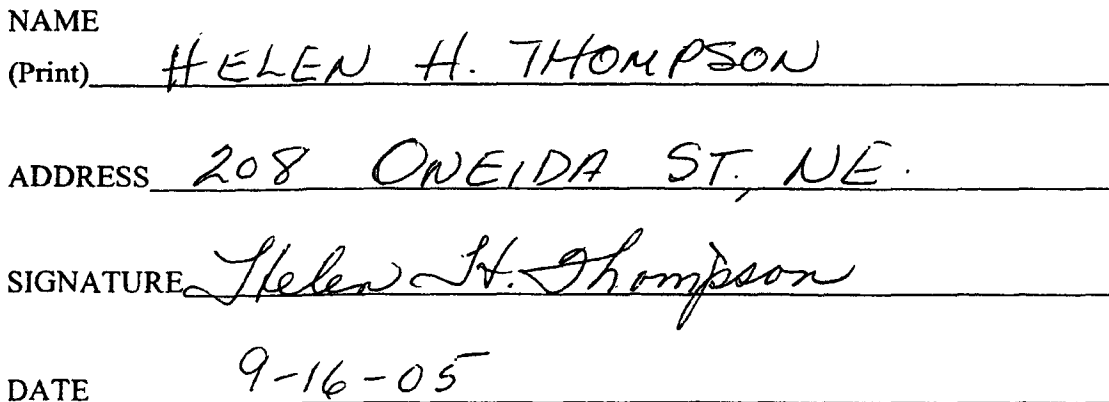 NAME
(Print) HELEN H. THOMPSON
ADDRESS 208 ONEIDA ST., NE.
SIGNATURE Helen H. Thompson
DATE 9-16-05